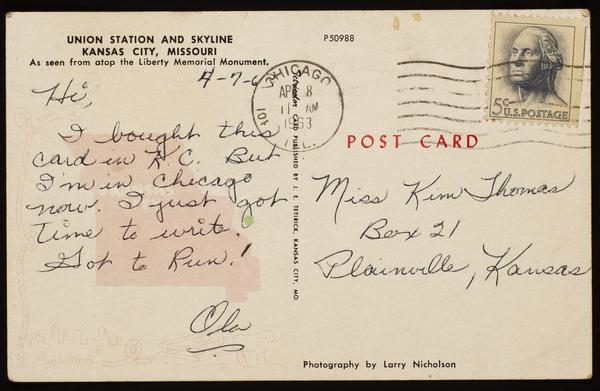 UNION STATION AND SKYLINE
KANSAS CITY, MISSOURI
As seen from atop the Liberty Memorial Monument.
P50988
4-7-6
Hi,
I bought this
card in K.C. But
I'm in Chicago
now. I just got
time to write.
Got to Run!
Ola
CARD PUBLISHED BY J. E. TETIRICK, KANSAS CITY, MO.
CHICAGO
APR 8
11 AM
1963
ILL.
101
5¢
U.S. POSTAGE
POST CARD
Miss Kim Thomas
Box 21
Plainville, Kansas
Photography by Larry Nicholson